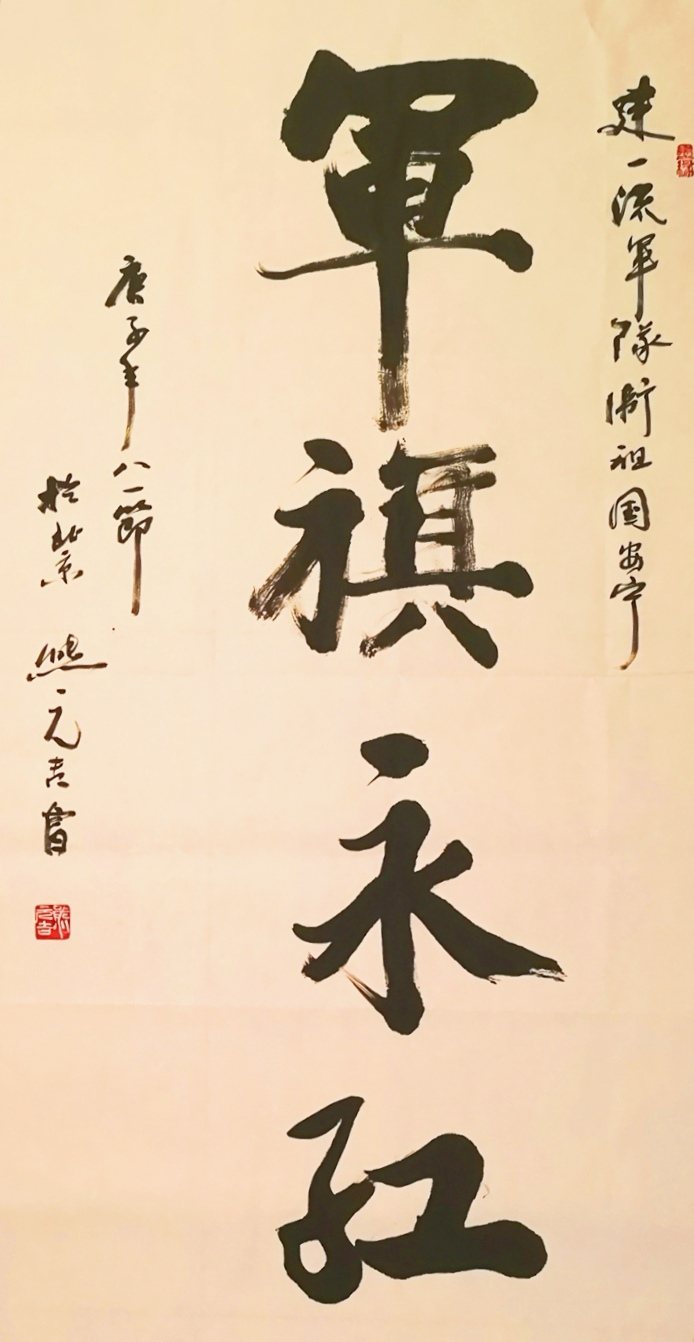 建一流軍隊衛祖国安宁
軍旗永红
庚子年八一節
於北京 熊元吉書
熊元吉